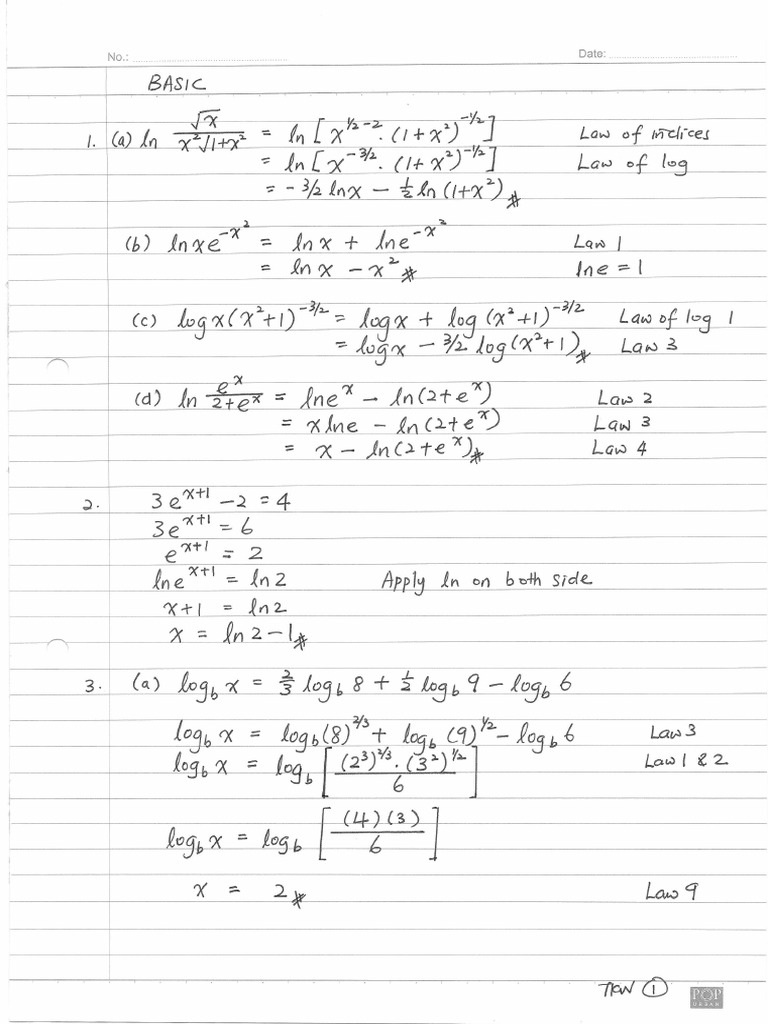 No.: Date:
BASIC
1. (a) ln √x / x²√1+x² = ln [ x^(1/2-2) . (1+x²)^(-1/2) ] Law of indices
= ln [ x^(-3/2) . (1+x²)^(-1/2) ] Law of log
= -3/2 lnx - 1/2 ln (1+x²)#
(b) lnxe^(-x²) = lnx + lne^(-x²) Law 1
= lnx - x²# lne = 1
(c) logx(x²+1)^(-3/2) = logx + log (x²+1)^(-3/2) Law of log 1
= logx - 3/2 log(x²+1)# Law 3
(d) ln e^x / 2+e^x = lne^x - ln(2+e^x) Law 2
= xlne - ln(2+e^x) Law 3
= x - ln(2+e^x)# Law 4
2. 3e^(x+1) - 2 = 4
3e^(x+1) = 6
e^(x+1) = 2
lne^(x+1) = ln2 Apply ln on both side
x+1 = ln2
x = ln2-1#
3. (a) log_b x = 2/3 log_b 8 + 1/2 log_b 9 - log_b 6
log_b x = log_b (8)^(2/3) + log_b (9)^(1/2) - log_b 6 Law 3
log_b x = log_b [ (2³)^(2/3) . (3²)^(1/2) / 6 ] Law 1 & 2
log_b x = log_b [ (4)(3) / 6 ]
x = 2# Law 9
①
POP
URBAN